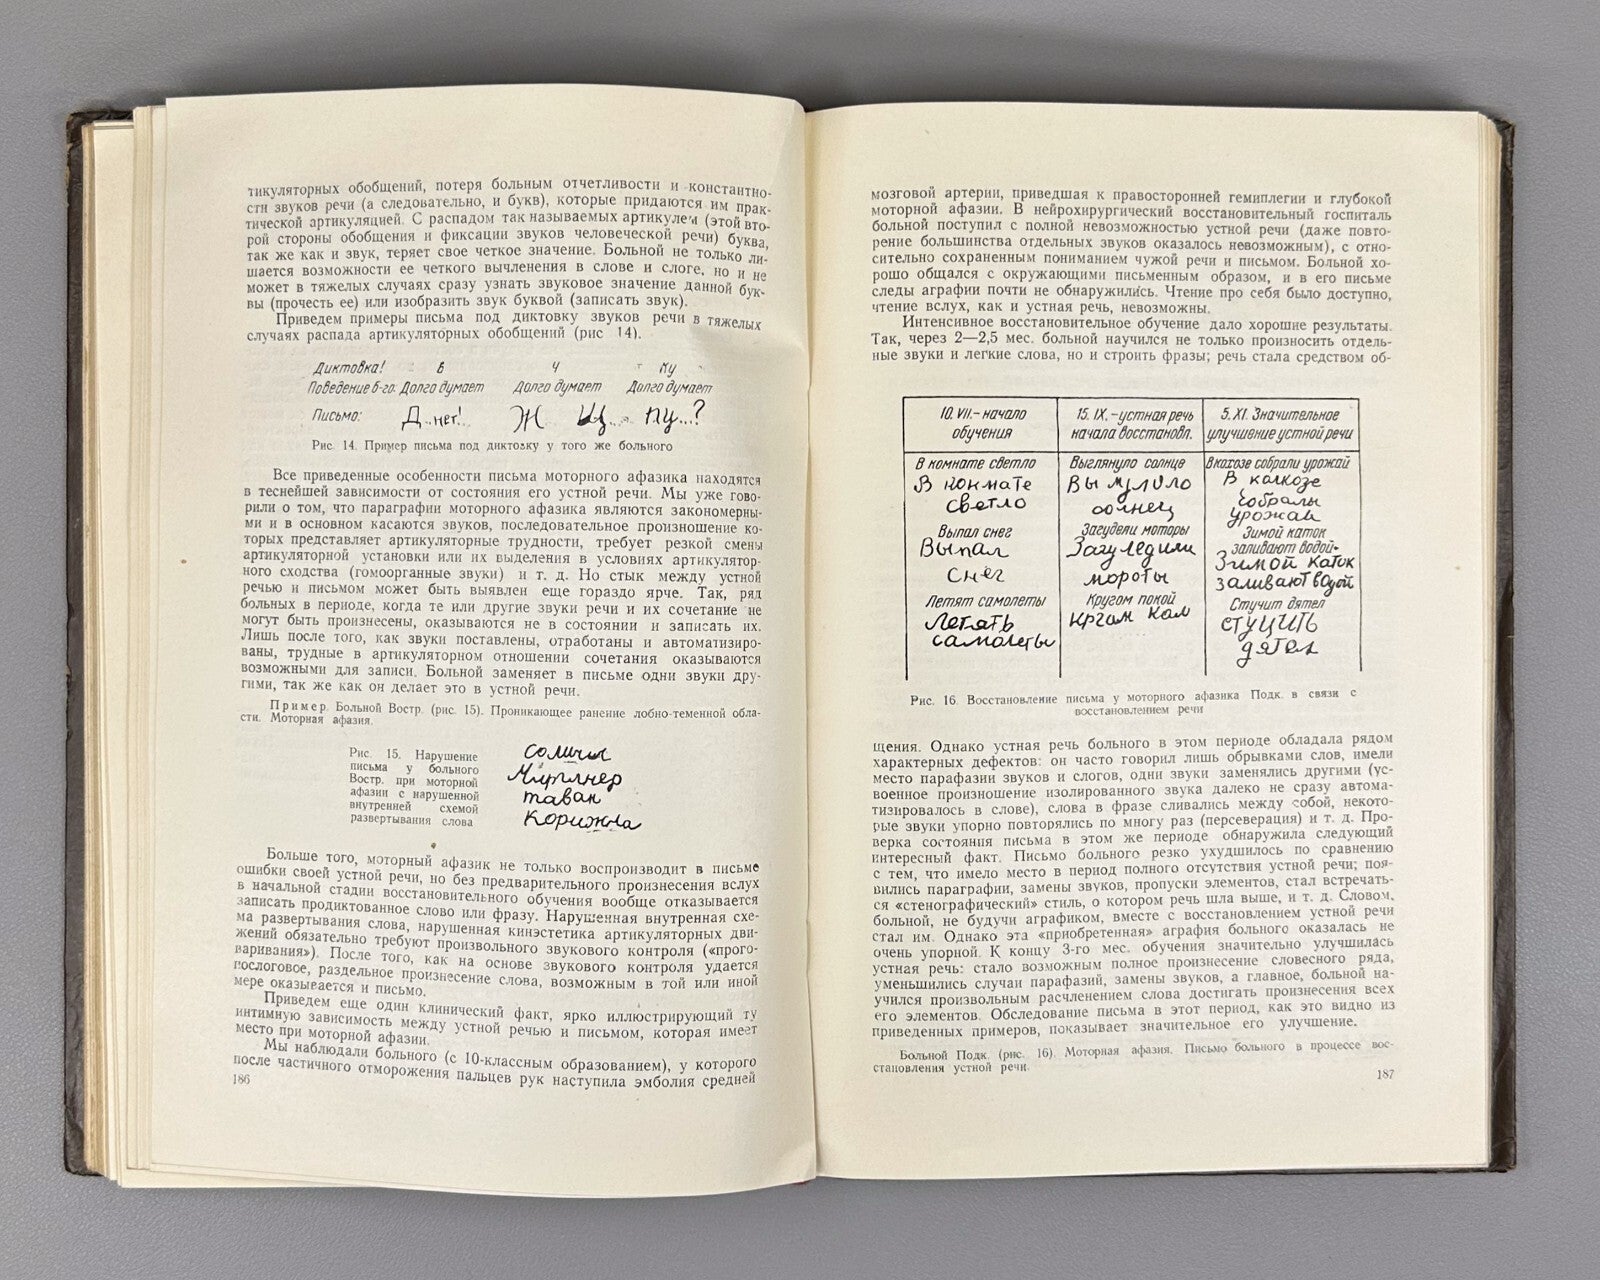 тикуляторных обобщений, потеря больным отчетливости и константно-
сти звуков речи (а следовательно, и букв), которые придаются им прак-
тической артикуляцией. С распадом так называемых артикулем (этой вто-
рой стороны обобщения и фиксации звуков человеческой речи) буква,
так же как и звук, теряет свое четкое значение. Больной не только ли-
шается возможности ее четкого вычленения в слове и слоге, но и не
может в тяжелых случаях сразу узнать звуковое значение данной бук-
вы (прочесть ее) или изобразить звук буквой (записать звук).
Приведем примеры письма под диктовку звуков речи в тяжелых
случаях распада артикуляторных обобщений (рис 14).
Диктовка: в ч пу
Поведение б-го: Долго думает Долго думает Долго думает
Письмо: Д..нет!.. Ж Щ... пу...?
Рис. 14. Пример письма под диктовку у того же больного
Все приведенные особенности письма моторного афазика находятся
в теснейшей зависимости от состояния его устной речи. Мы уже гово-
рили о том, что параграфии моторного афазика являются закономерны-
ми и в основном касаются звуков, последовательное произношение ко-
торых представляет артикуляторные трудности, требует резкой смены
артикуляторной установки или их выделения в условиях артикулятор-
ного сходства (гомоорганные звуки) и т. д. Но стык между устной
речью и письмом может быть выявлен еще гораздо ярче. Так, ряд
больных в периоде, когда те или другие звуки речи и их сочетание не
могут быть произнесены, оказываются не в состоянии и записать их.
Лишь после того, как звуки поставлены, отработаны и автоматизиро-
ваны, трудные в артикуляторном отношении сочетания оказываются
возможными для записи. Больной заменяет в письме одни звуки дру-
гими, так же как он делает это в устной речи.
Пример. Больной Востр. (рис. 15). Проникающее ранение лобно-теменной обла-
сти. Моторная афазия.
Рис. 15. Нарушение
письма у больного
Востр. при моторной
афазии с нарушенной
внутренней схемой
развертывания слова
таван
корижна
Больше того, моторный афазик не только воспроизводит в письме
ошибки своей устной речи, но без предварительного произнесения вслух
в начальной стадии восстановительного обучения вообще отказывается
записать продиктованное слово или фразу. Нарушенная внутренняя схе-
ма развертывания слова, нарушенная кинэстетика артикуляторных дви-
жений обязательно требуют произвольного звукового контроля («прого-
варивания»). После того, как на основе звукового контроля удается
послоговое, раздельное произнесение слова, возможным в той или иной
мере оказывается и письмо.
Приведем еще один клинический факт, ярко иллюстрирующий ту
интимную зависимость между устной речью и письмом, которая имеет
место при моторной афазии.
Мы наблюдали больного (с 10-классным образованием), у которого
после частичного отморожения пальцев рук наступила эмболия средней
186
мозговой артерии, приведшая к правосторонней гемиплегии и глубокой
моторной афазии. В нейрохирургический восстановительный госпиталь
больной поступил с полной невозможностью устной речи (даже повто-
рение большинства отдельных звуков оказалось невозможным), с отно-
сительно сохраненным пониманием чужой речи и письмом. Больной хо-
рошо общался с окружающими письменным образом, и в его письме
следы аграфии почти не обнаружились. Чтение про себя было доступно,
чтение вслух, как и устная речь, невозможны.
Интенсивное восстановительное обучение дало хорошие результаты.
Так, через 2—2,5 мес. больной научился не только произносить отдель-
ные звуки и легкие слова, но и строить фразы; речь стала средством об-
10. VII.-начало
обучения
В комнате светло
В комнате
светло
Выпал снег
Выпал
снег
Летят самолеты
Летять
самолеты
15. IX.-устная речь
начала восстановл.
Выглянуло солнце
солнец
Загудели моторы
Загуледили
мороты
Кругом покой
кргом кам
5. XI. Значительное
улучшение устной речи
В кохозе собрали урожай
В колкозе
собралы
урожай
Зимой каток
заливают водой
Зимой каток
заливают водой
Стучит дятел
стуцить
дятел
Рис. 16. Восстановление письма у моторного афазика Подк. в связи с
восстановлением речи
щения. Однако устная речь больного в этом периоде обладала рядом
характерных дефектов: он часто говорил лишь обрывками слов, имели
место парафазии звуков и слогов, одни звуки заменялись другими (ус-
военное произношение изолированного звука далеко не сразу автома-
тизировалось в слове), слова в фразе сливались между собой, некото-
рые звуки упорно повторялись по многу раз (персеверация) и т. д. Про-
верка состояния письма в этом же периоде обнаружила следующий
интересный факт. Письмо больного резко ухудшилось по сравнению
с тем, что имело место в период полного отсутствия устной речи; поя-
вились параграфии, замены звуков, пропуски элементов, стал встречать-
ся «стенографический» стиль, о котором речь шла выше, и т. д. Словом,
больной, не будучи аграфиком, вместе с восстановлением устной речи
стал им. Однако эта «приобретенная» аграфия больного оказалась не
очень упорной. К концу 3-го мес. обучения значительно улучшилась
устная речь: стало возможным полное произнесение словесного ряда,
уменьшились случаи парафазий, замены звуков, а главное, больной на-
учился произвольным расчленением слова достигать произнесения всех
его элементов. Обследование письма в этот период, как это видно из
приведенных примеров, показывает значительное его улучшение.
Больной Подк. (рис. 16). Моторная афазия. Письмо больного в процессе вос-
становления устной речи.
187